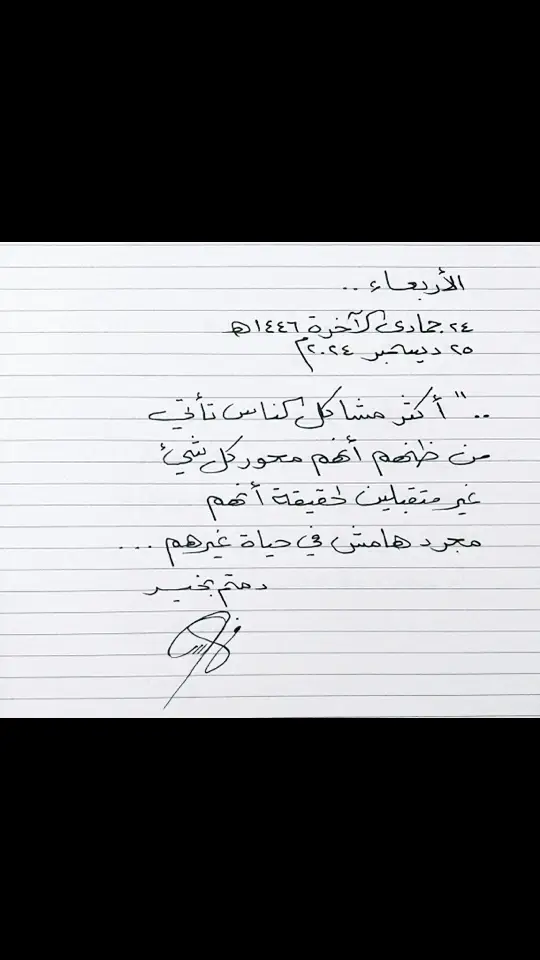 الأربعاء ..
٢٤ جمادى الآخرة ١٤٤٦هـ
٢٥ ديسمبر ٢٠٢٤م
.. " أكثر مشاكل الناس تأتي
من ظنهم أنهم محور كل شيئ
غير متقبلين لحقيقة أنهم
مجرد هامش في حياة غيرهم ...
دمتم بخير